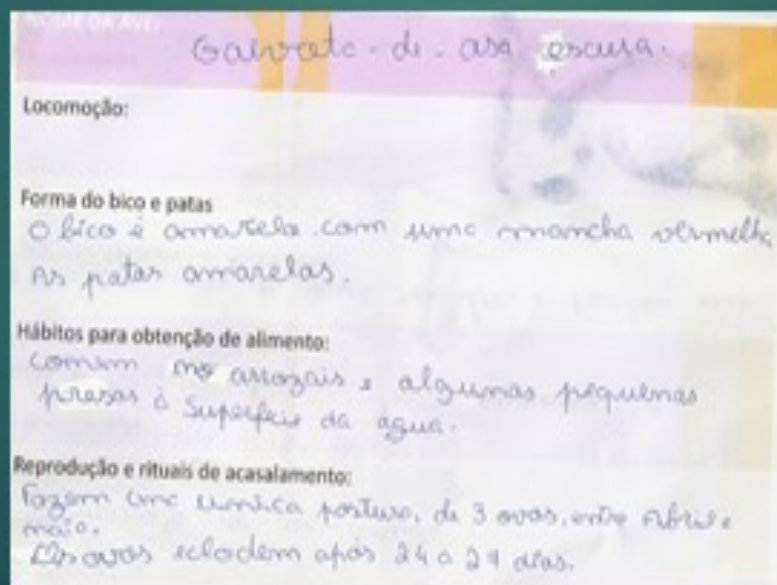 NOME DA AVE:
Gaivota - de - asa escura.
Locomoção:
Forma do bico e patas
O bico é amarelo com uma mancha vermelha
As patas amarelas.
Hábitos para obtenção de alimento:
comem no arrozais e algumas pequenas
presas à Superfeis da água.
Reprodução e rituais de acasalamento:
Fazem uma unica postura, de 3 ovos, entre Abril e
maio.
Os ovos eclodem após 24 a 27 dias.